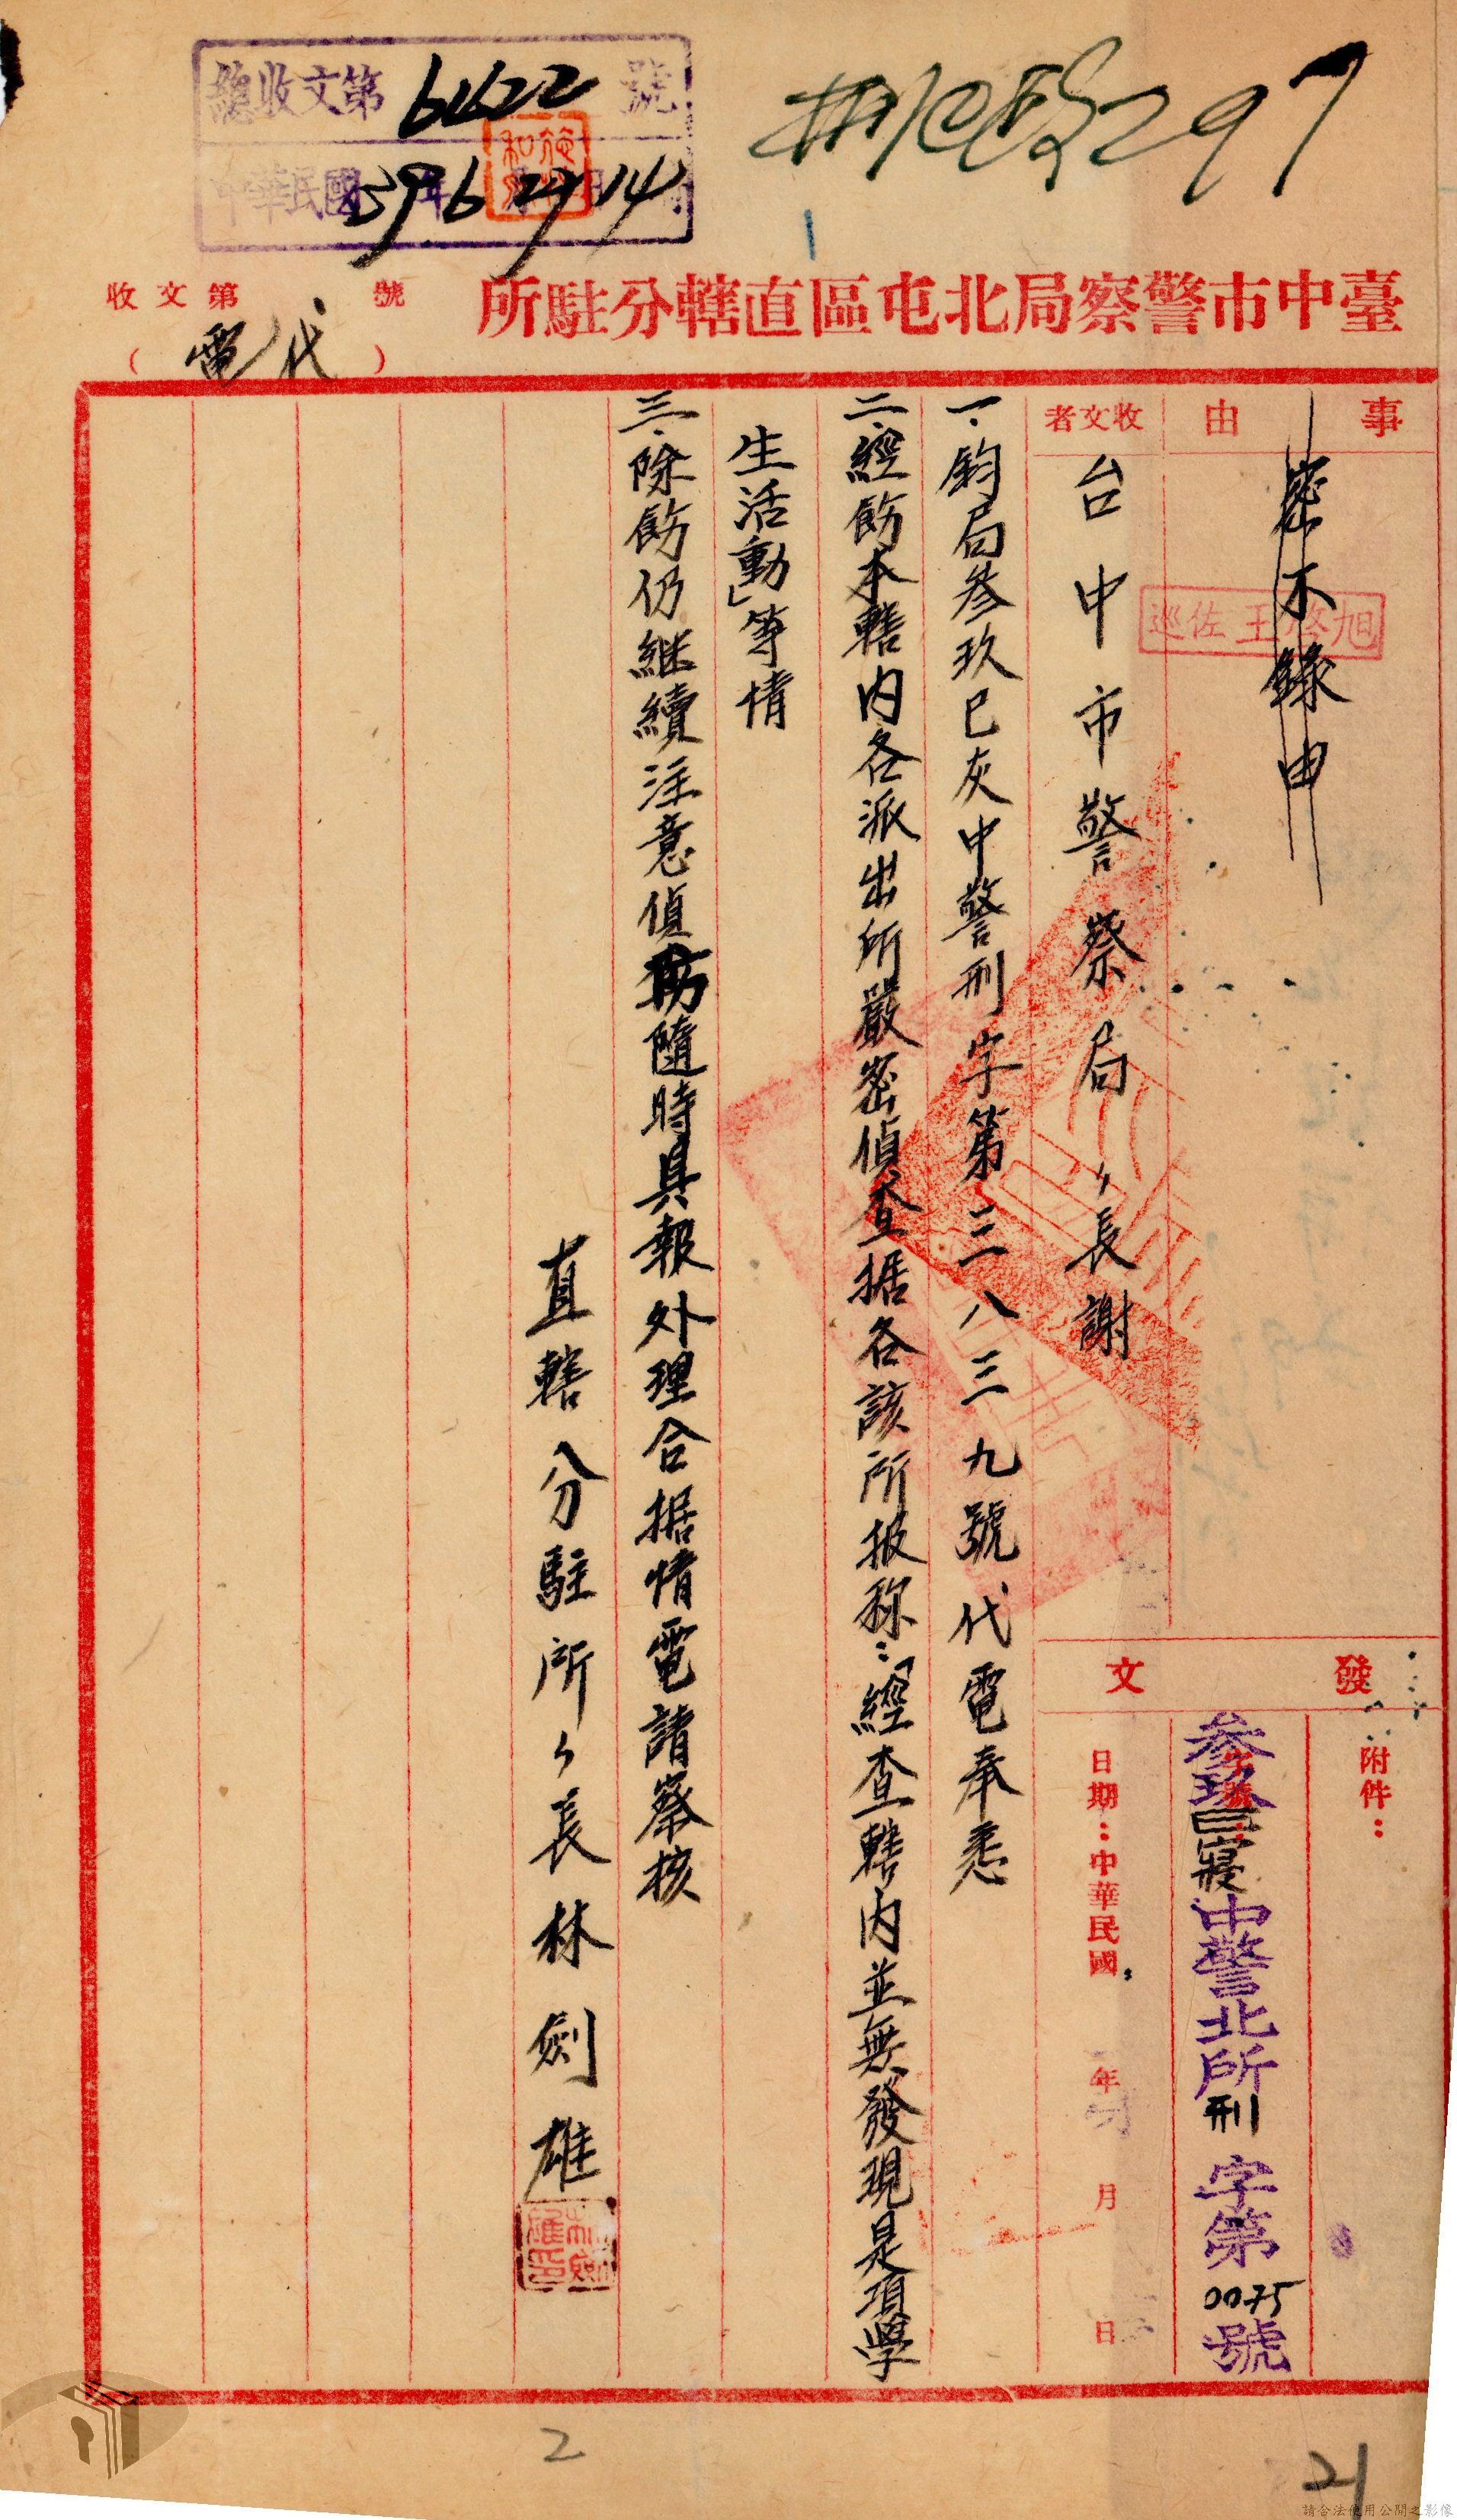 總收文第6622號
中華民國39年6月27日14
297
臺中市警察局北屯區直轄分駐所
(代電)
收文第 號
事由
密不錄由
巡佐王啓旭
收文者
台中市警察局、長謝
發文
附件：
字號
參玖巳寢中警北所刑字第0075號
日期：中華民國 年 月 日
一、鈞局參玖巳灰中警刑字第三八三九號代電奉悉
二、經飭本轄內各派出所嚴密偵查据各該所报称：「經查轄內並無發現是項學
生活動」等情
三、除飭仍継續注意偵防隨時具報外理合据情電請察核
直轄分駐所、長林劍雄
2
21
請合法使用公開之影像